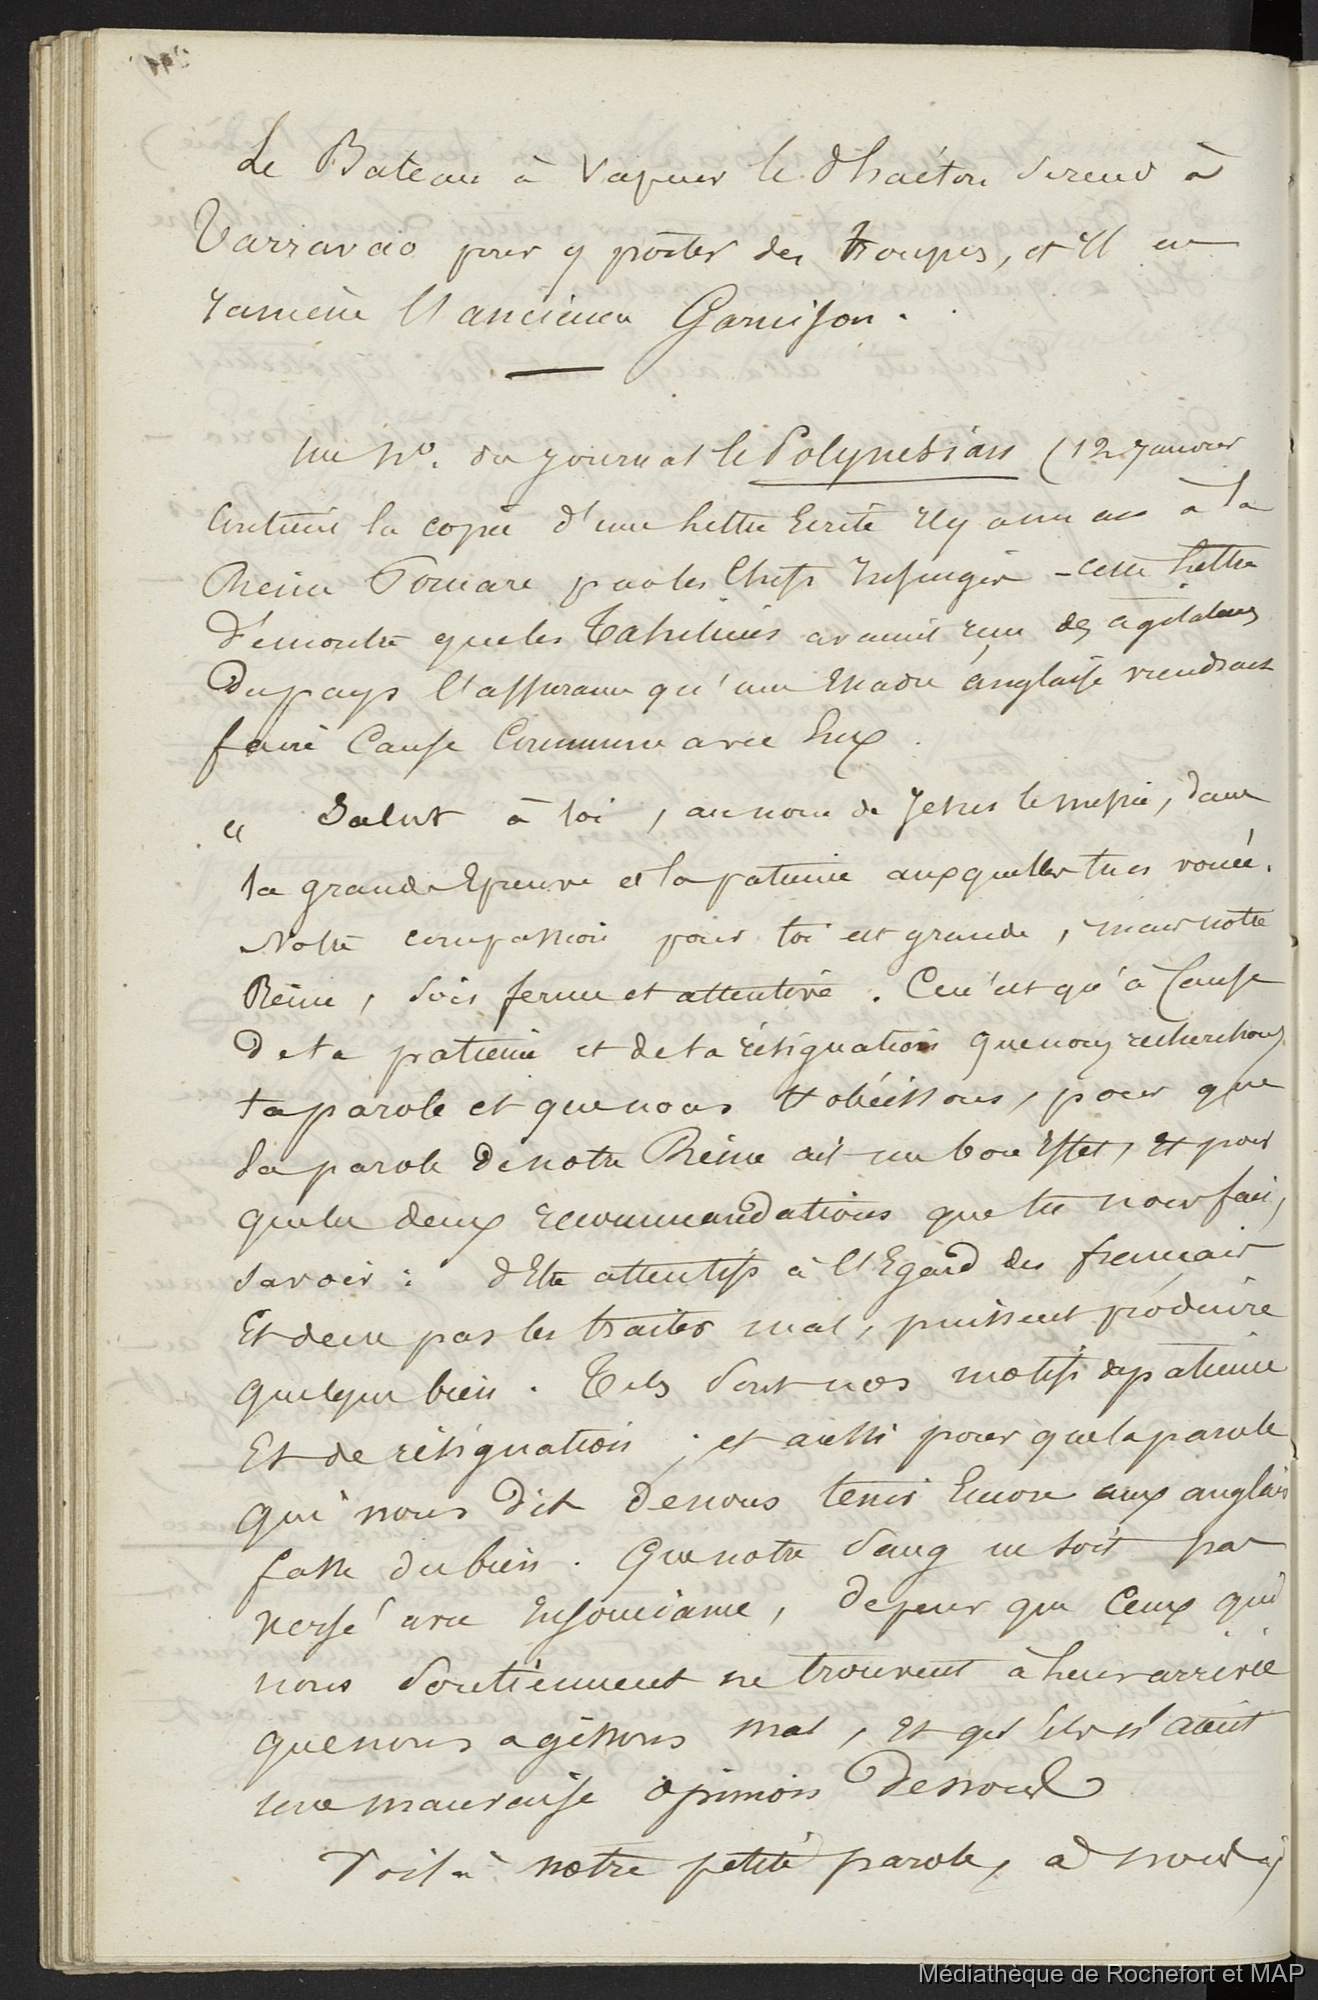 Le Bateau à Vapeur le Phaéton se rend à
Tarravao pour y porter des troupes, et Il en
ramène l'ancienne Garnison.
Un No. du journal le Polynesian (12 Janvier
Contient la copie d'une lettre Ecrite Il y a un an à la
Reine Pomare par les Chefs Insurgés - cette lettre
Démontre que les Tahitiens avaient reçu des agitateurs
Du pays l'assurance qu'une Escadre anglaise viendrait
faire Cause Commune avec Eux.
" Salut à toi, au nom de Jesus le messie, dans
la grande Epreuve et la patience auxquelles tu es vouée.
Notre compassion pour toi est grande, mais notre
Reine, sois ferme et attentive. Ce n'est qu'à Cause
De ta patience et de ta résignation que nous recherchons
ta parole et que nous t'obéissons, pour que
la parole de notre Reine ait un bon Effet, et pour
que les deux recommandations que tu nous fais,
savoir : d'Etre attentifs à l'Egard des français
Et de ne pas les traiter mal, puissent produire
quelque bien. Tels sont nos motifs de patience
Et de résignation ; et aussi pour que la parole
qui nous Dit de nous tenir Encore aux anglais
fasse du bien. Que notre sang ne soit pas
versé avec Insouciance, de peur que Ceux qui
nous soutiennent ne trouvent à leur arrivée
que nous agissons mal, Et qu'ils n'aient
une mauvaise opinion De nous
Voilà notre petite parole, à nous
Médiathèque de Rochefort et MAP